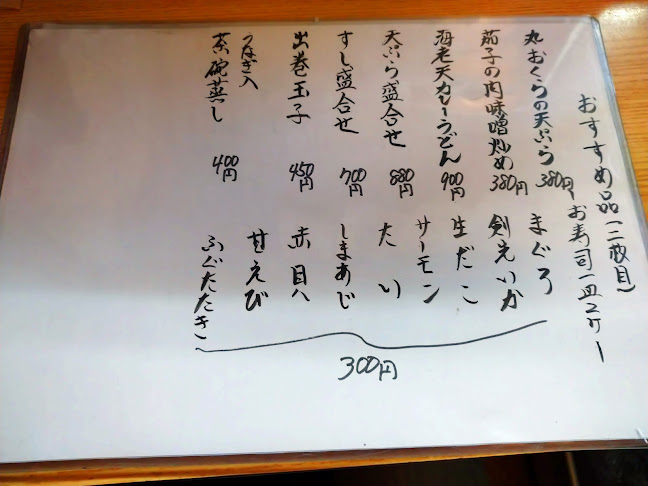 おすすめ品(二枚目)
丸おくらの天ぷら 380円
茄子の肉味噌炒め 380円
海老天カレーうどん 900円
天ぷら盛合せ 880円
すし盛合せ 700円
出巻玉子 450円
うなぎ入
茶碗蒸し 400円
お寿司一皿2ケ
まぐろ
剣先いか
生だこ
サーモン
たい
しまあじ
赤目ハ
甘えび
ふぐたたき
300円